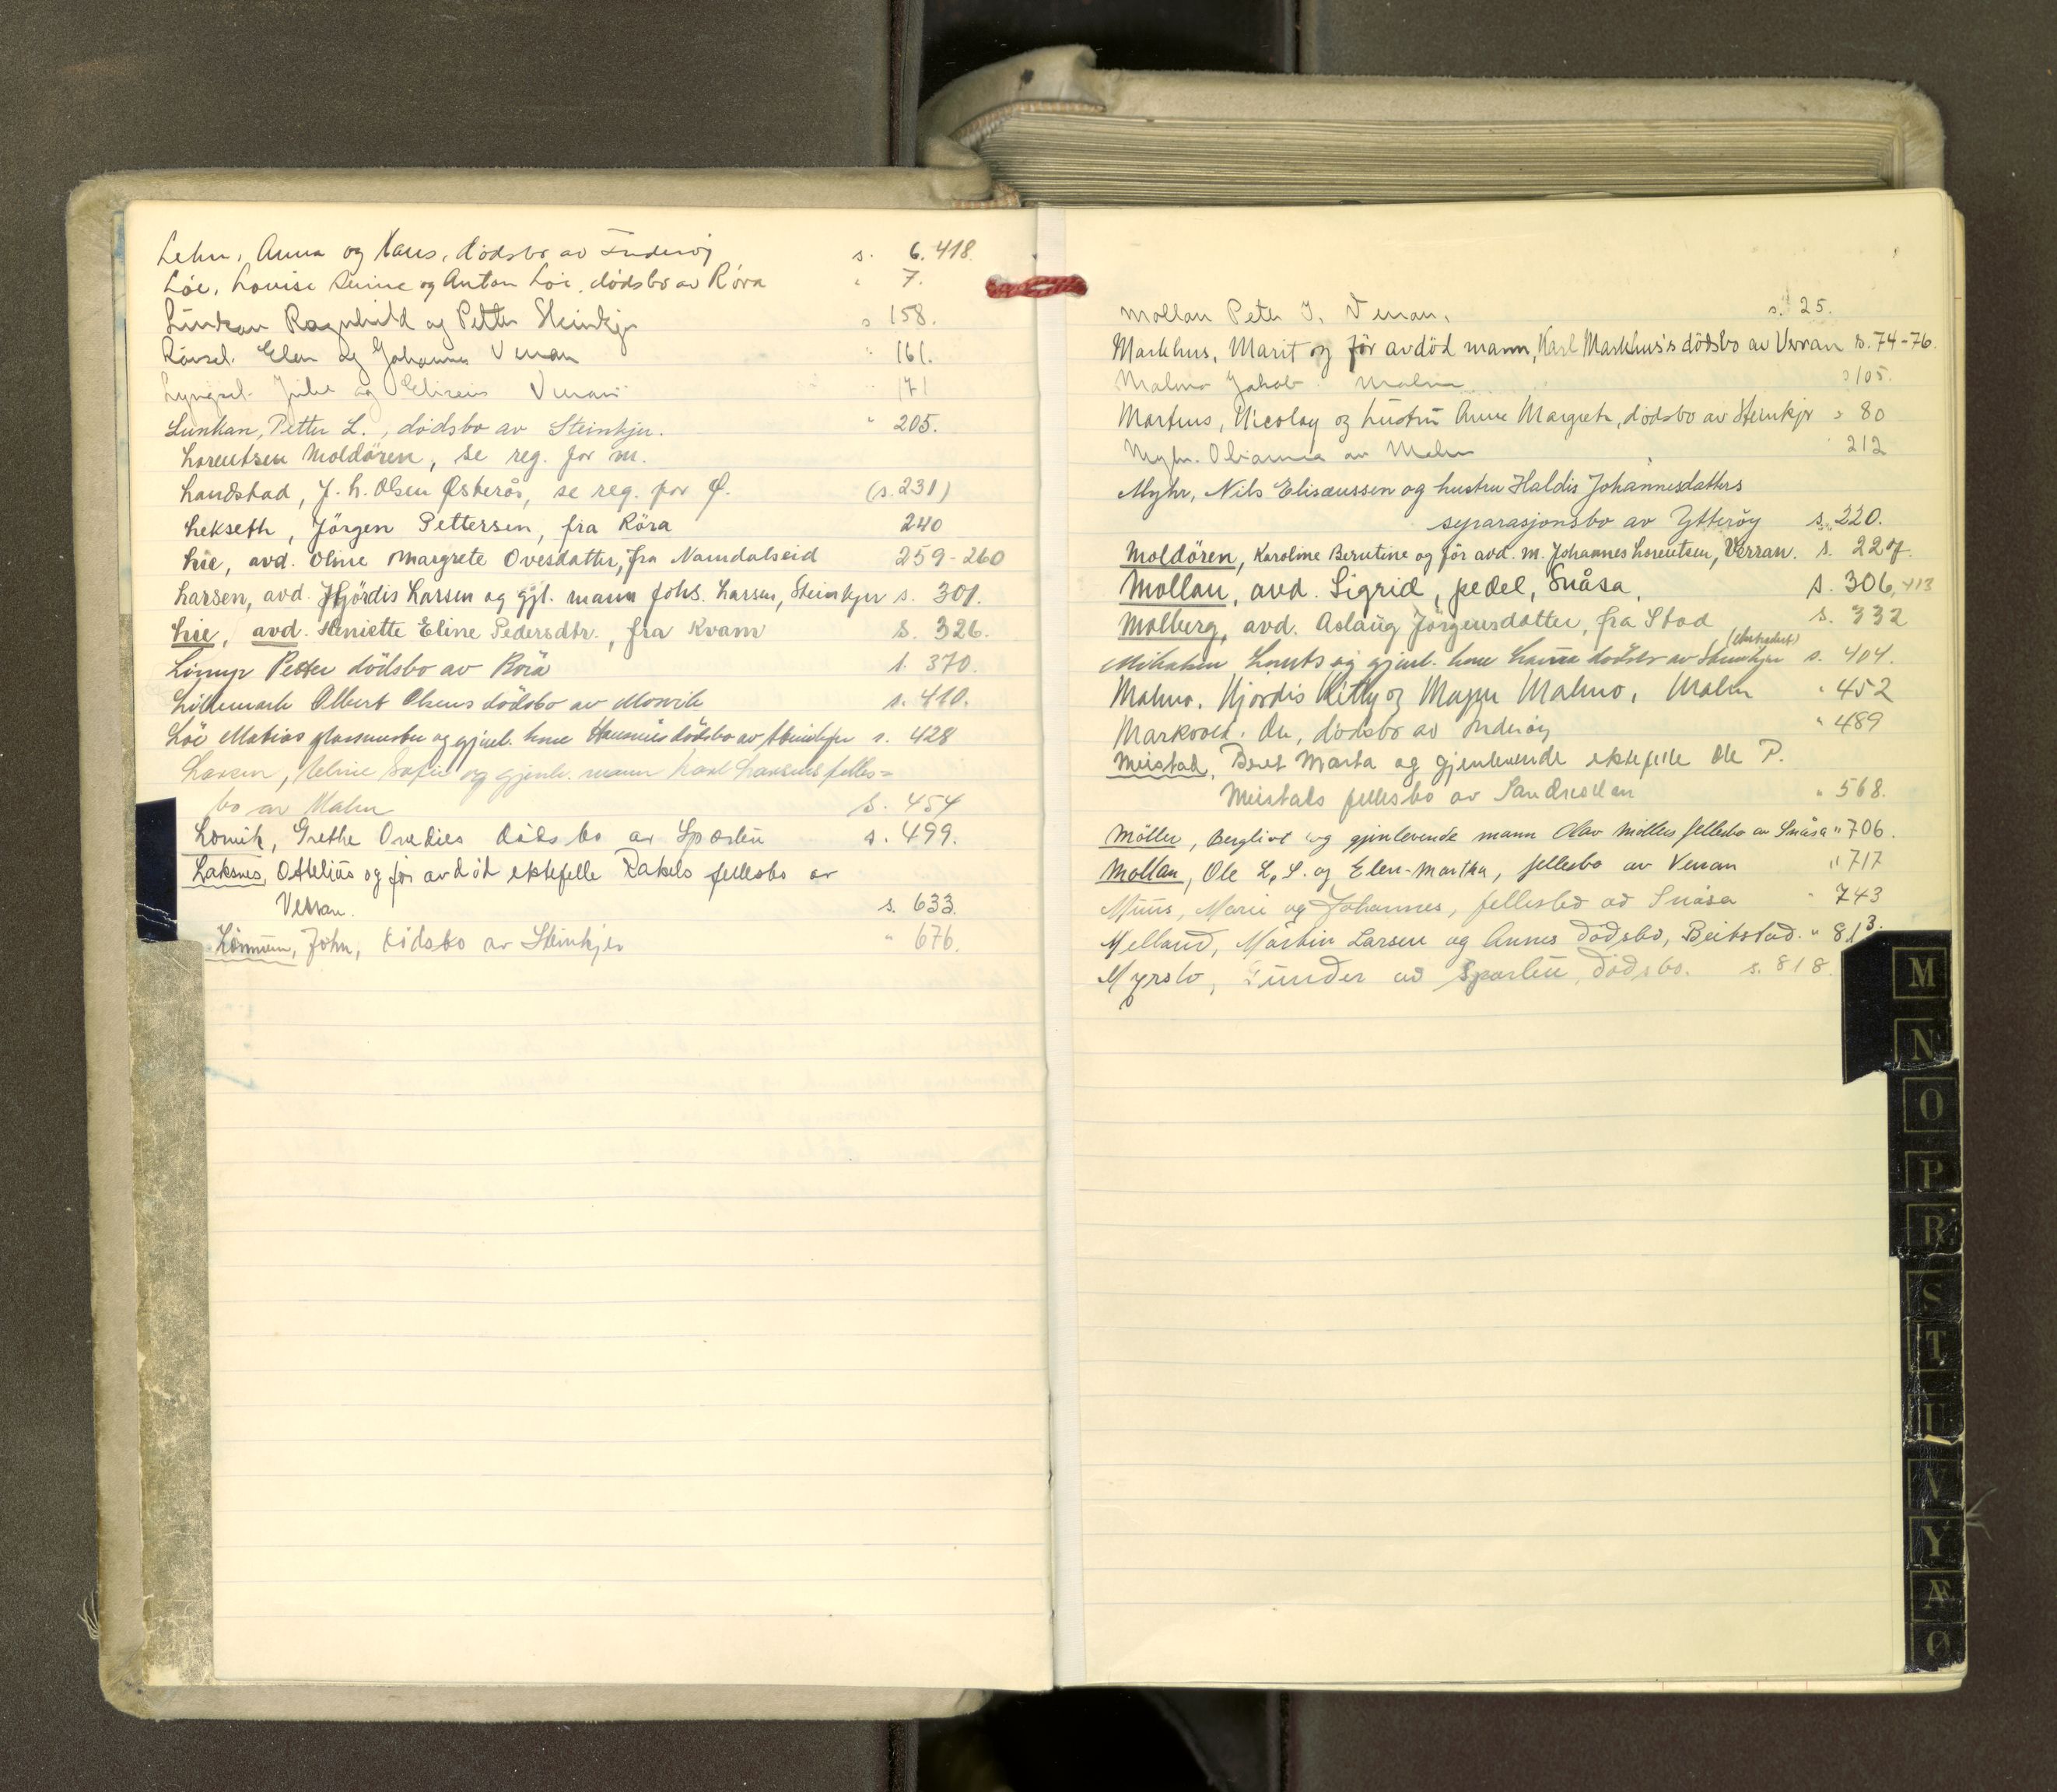 Lehn, Anna og Hans, dödsbo av Inderöy s. 6. 418
Löe, Lovise og Anton Löe, dödsbo av Röra " 7.
Lunkan Ragnhild og Petter Steinkjer s 158.
Elen og Johannes Verran " 161.
Julie og Verran " 171
Lunkan, Petter L., dödsbo av Steinkjer. " 205.
Lorentsen Moldören, se reg. for M.
Landstad, J. h. Olsen Österås, se reg. for Ø. (s. 231)
Lekseth, Jörgen Pettersen, fra Röra 240
Lie, avd. Oline Margrete Ovesdatter, fra Namdalseid 259-260
Larsen, avd. Hjördis Larsen og gjl. mann Johs. Larsen, Steinkjer s. 301.
Lie, avd. Henriette Eline Pedersdtr., fra Kvam s. 326.
Petter dödsbo av Röra s. 370.
Lillemark Albert Olsens dödsbo av Mosvik s. 410.
Löe Matias og gjenl. hme dödsbo av Steinkjer s. 428
Larsen, Sofie og gjenl. mann Karl Larsens felles-
bo av Malm s. 454
Lorvik, Grethe dödsbo av Sparbu s. 499.
Laksnes, Ottelius og før avdöd ektefelle Rakels fellesbo av
Verran. s. 633.
John, dödsbo av Steinkjer " 676.
Mollan Peter J. Verran. s. 25.
Markhus, Marit og för avdöd mann, Karl Markhus's dödsbo av Verran s. 74-76.
Malmo Jakob. Malm s 105.
Martins, Nicolay og hustru Anne Margrete, dödsbo av Steinkjer s 80
av Malm 212
Myhr, Nils Elisæussen og hustru Haldis Johannesdatters
separasjonsbo av Ytteröy s. 220.
Moldören, Karoline Berntine og för avd. m. Johannes Lorentsen, Verran. s. 227.
Mollan, avd. Sigrid, pedel, Snåsa, s. 306, 413
Molberg, avd. Aslaug Jörgensdatter, fra Stod s. 332
og gjenl. hme dödsbo av Steinkjer s. 404.
Malmo, Hjördis Kitty og Magne Malmo, Malm " 452
Markved. Ole, dödsbo av Inderöy " 489
Meistad, Beret Marta og gjenlevende ektefelle Ole P.
Meistads fellesbo av Sandvollan " 568.
Möller, Bergliot og gjenlevende mann Olav Möllers fellesbo av Snåsa " 706.
Mollan, Ole L. S. og Elen-Martha, fellesbo av Verran " 717
Muus, Marie og Johannes, fellesbo av Snåsa " 743
Melland, Martin Larsen og Annes dödsbo, Beitstad. " 813.
Myrslo, Gunder av Sparbu, dödsbo. s. 818.
M
N
O
P
R
S
T
U
V
Y
Æ
Ø